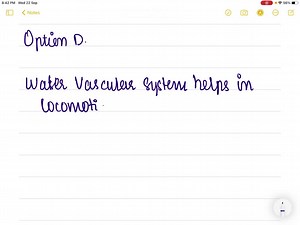 8:43 PM Wed 22 Sep
56%
Notes
Option D.
Water Vascular System helps in
locomoti